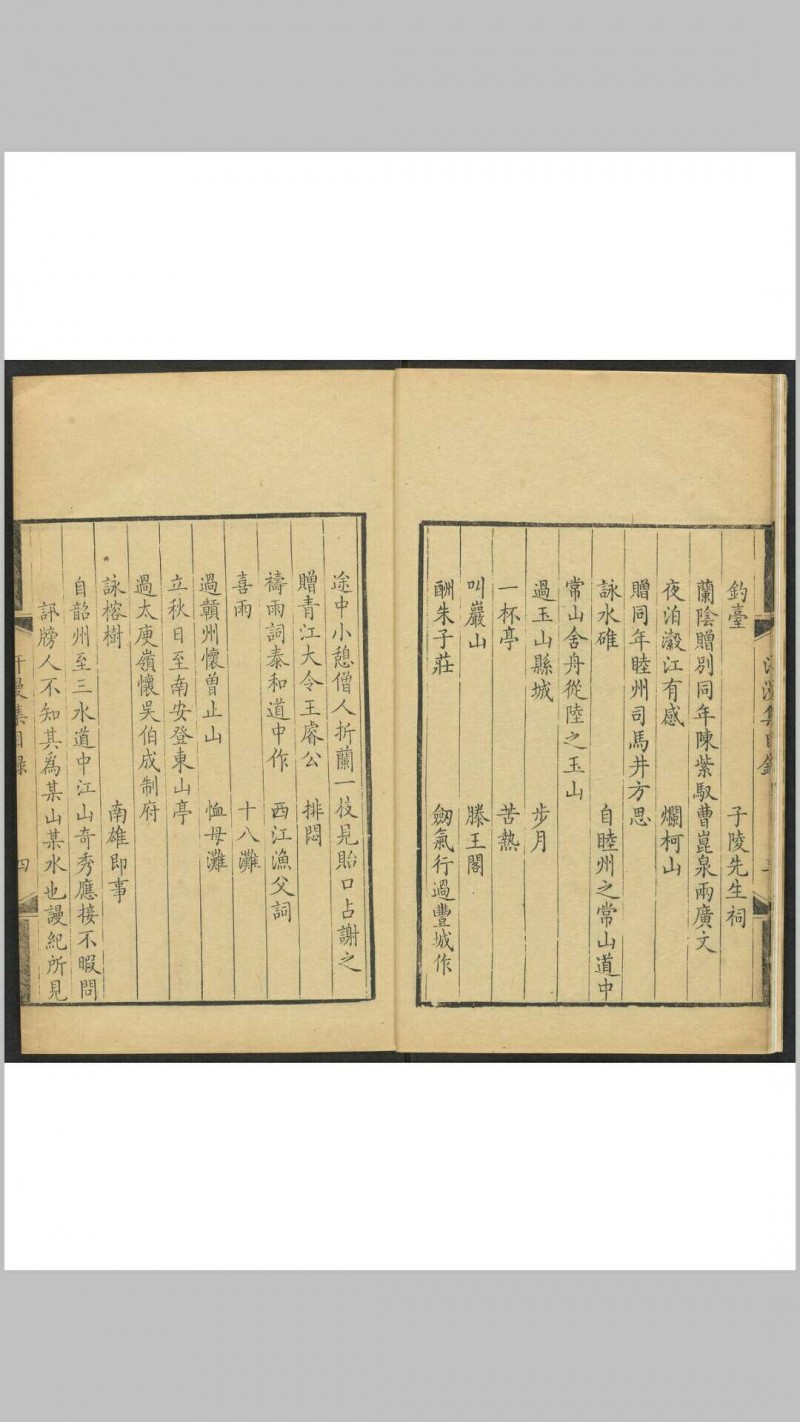 釣臺　子陵先生祠
蘭陰贈別同年陳紫馭曹崑泉兩廣文
夜泊瀫江有感　爛柯山
贈同年睦州司馬井方思
詠水碓　自睦州之常山道中
常山舍舟從陸之玉山
過玉山縣城　步月
一杯亭　苦熱
叫巖山　滕王閣
酬朱子莊　劒氣行過豐城作
途中小憩僧人折蘭一枝見貽口占謝之
贈青江大令王睿公　排悶
禱雨詞泰和道中作　西江漁父詞
喜雨　十八灘
過贛州懷曾止山　恤母灘
立秋日至南安登東山亭
過太庾嶺懷吳伯成制府
詠榕樹　南雄即事
自韶州至三水道中江山奇秀應接不暇問
訊牓人不知其為某山某水也謾紀所見
汗漫集目錄　四